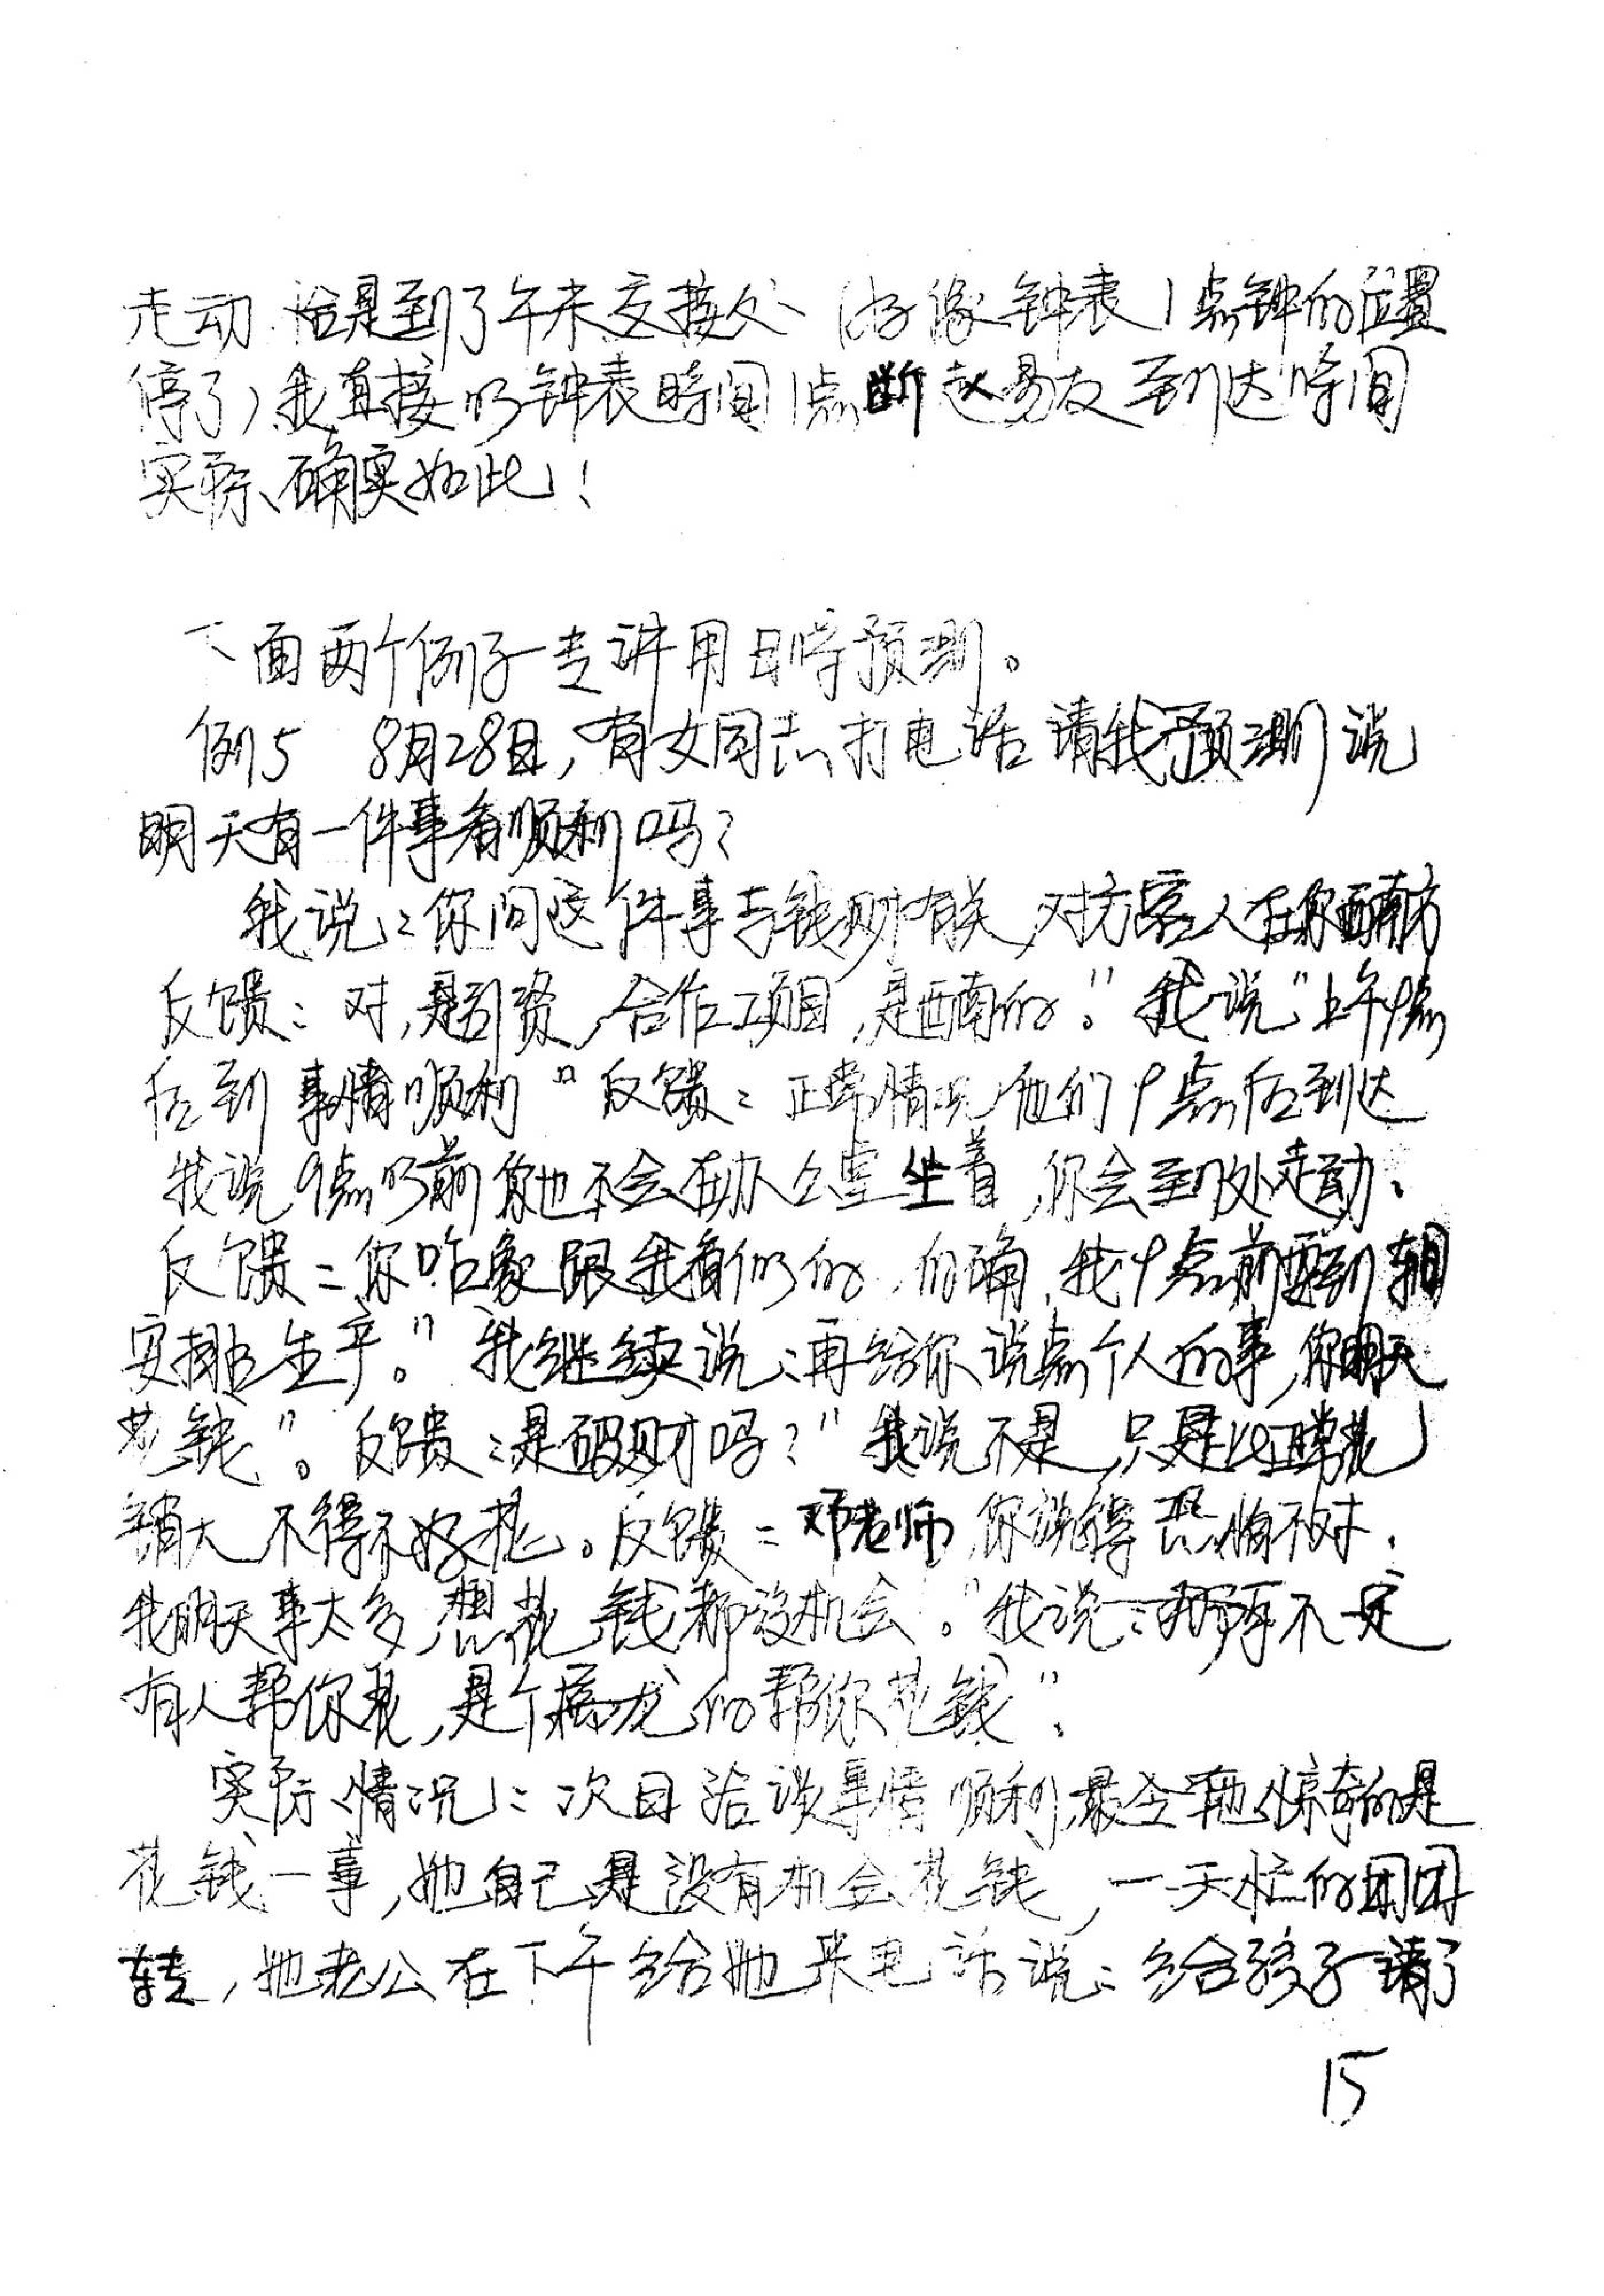 走动 恰是到了午未交接处（好像钟表1点钟的位置
停了）我直接以钟表时间1点断赵易友到达时间
实际、确实如此！
下面两个例子专讲用日时预测。
例5 8月28日，有女同志打电话请我预测说
明天有一件事看顺利吗？
我说：你问这件事与钱财有关，对方客人在你西南方
反馈：对，是引资，合作项目，是西南的。”我说“上午9点
后到 事情顺利”反馈：正常情况他们9点后到达
我说9点以前你也不会在办公室坐着，你会到处走动。
反馈：你咋象跟我看似的，的确，我9点前要到车间
安排生产。”我继续说：再给你说点个人的事，你明天
花钱”。反馈：是破财吗？”我说不是，只是比正常花
销大 不得不好花。反馈：邓老师，你说得恐怕不对．
我明天事太多，想花钱都没机会。”我说：不一定
有人帮你花，是个属龙的帮你花钱”．
实际情况：次日洽谈事情顺利，最令她惊奇的是
花钱一事，她自己是没有机会花钱，一天忙的团团
转，她老公在下午给她来电话说：给孩子请了
15